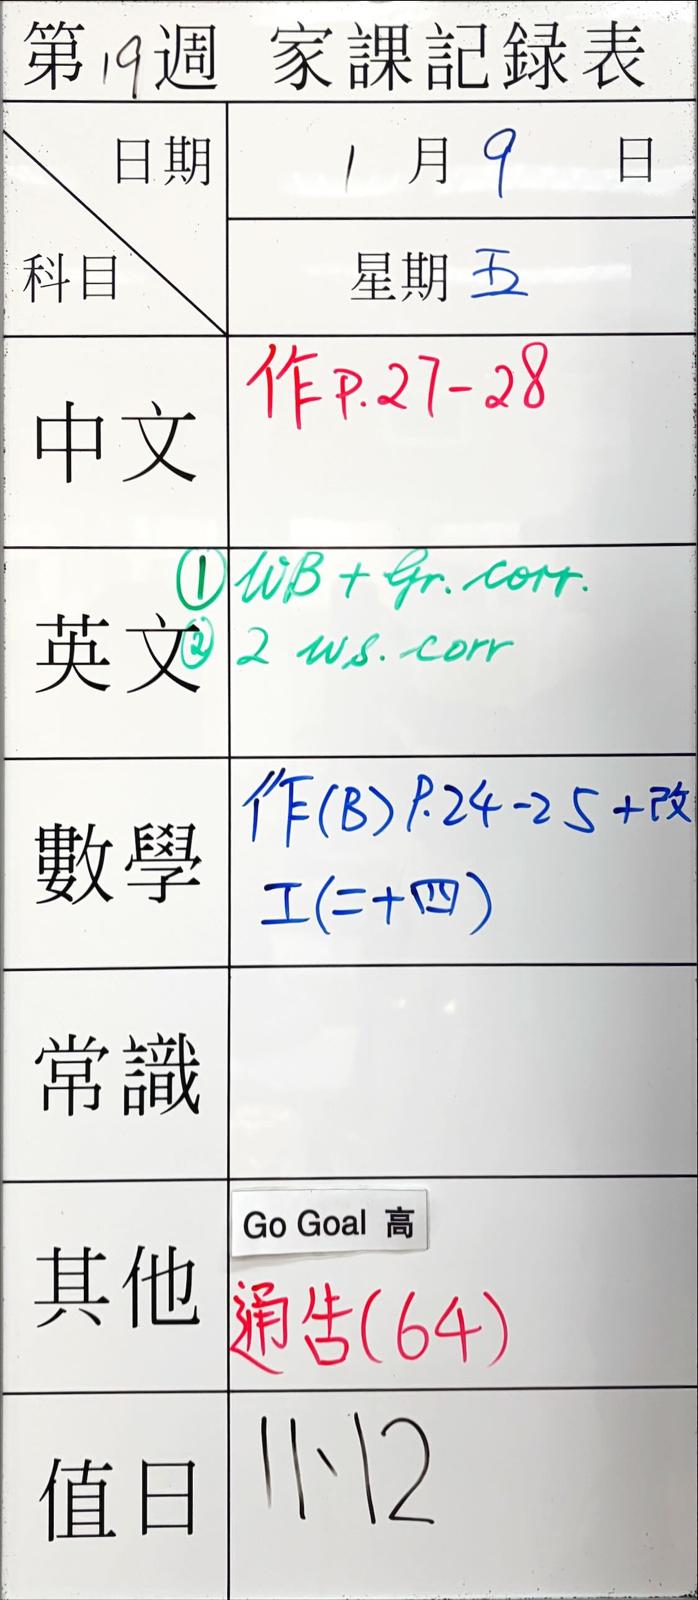 第19週 家課記録表
日期 1月9日
科目 星期五
中文 作P.27-28
① WB + Gr. corr.
英文 ② 2 ws. corr
作(B) P.24-25+改
數學 工(二十四)
常識
Go Goal 高
其他 通告(64)
值日 11、12